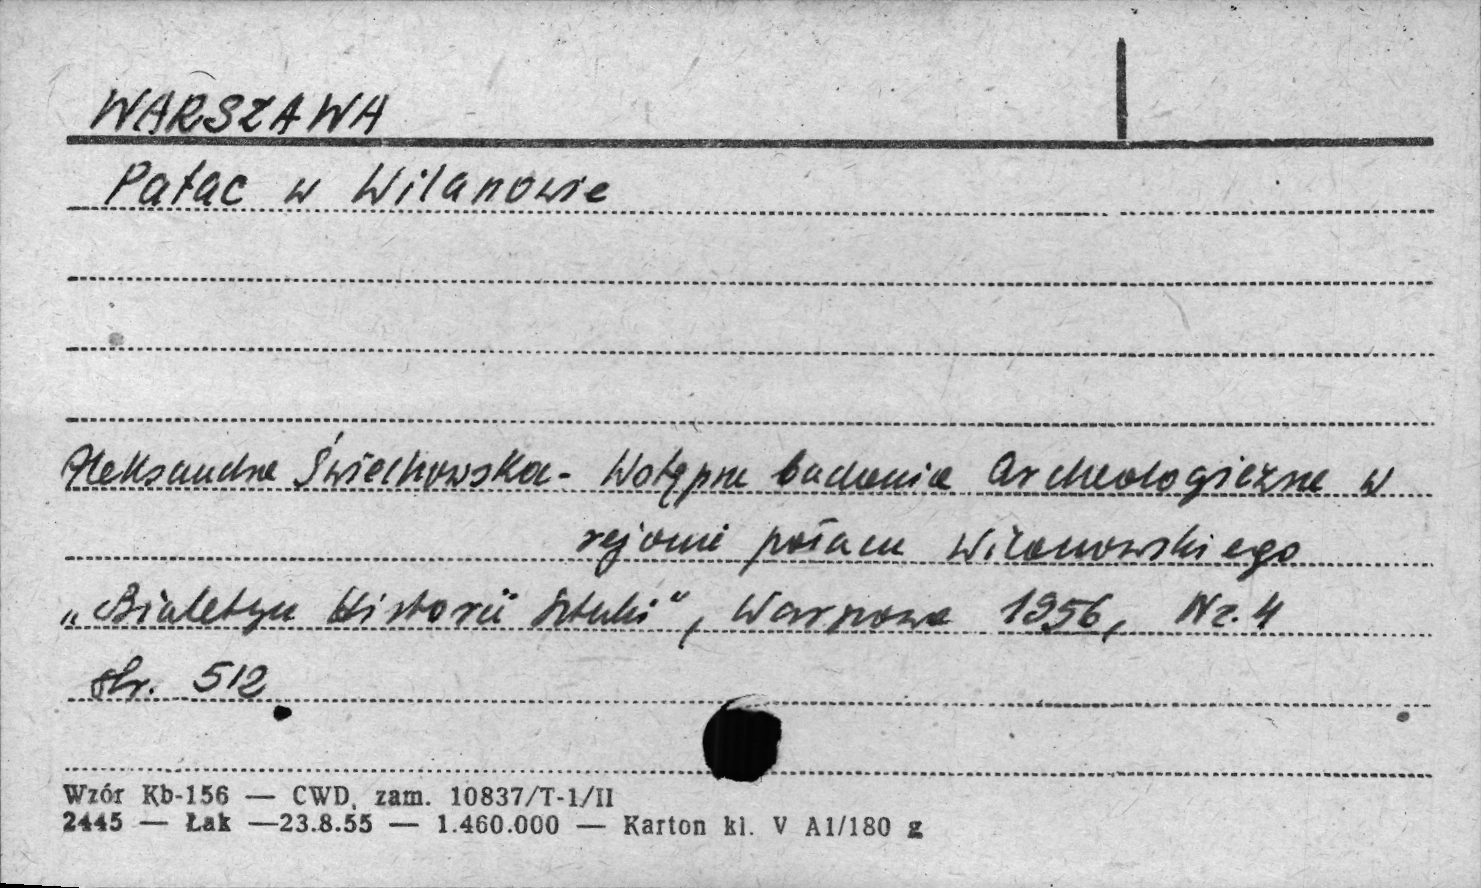 WARSZAWA
Pałac w Wilanowie
Aleksandra Świechowska - Wstępne badania archeologiczne w
rejonie pałacu Wilanowskiego
„Biuletyn Historii Sztuki", Warszawa 1956, Nr. 4
str. 512
Wzór Kb-156 — CWD, zam. 10837/T-1/II
2445 — Łak —23.8.55 — 1.460.000 — Karton kl. V A1/180 g